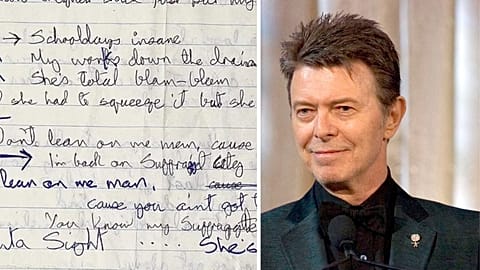 → Schooldays insane
My work's down the drain
She's total blam-blam
she had to squeeze it but she
Don't lean on me man, cause
→ I'm back on Suffragette city
lean on me man,
cause you ain't got t
You know my Suffragette
Sight ..... She's